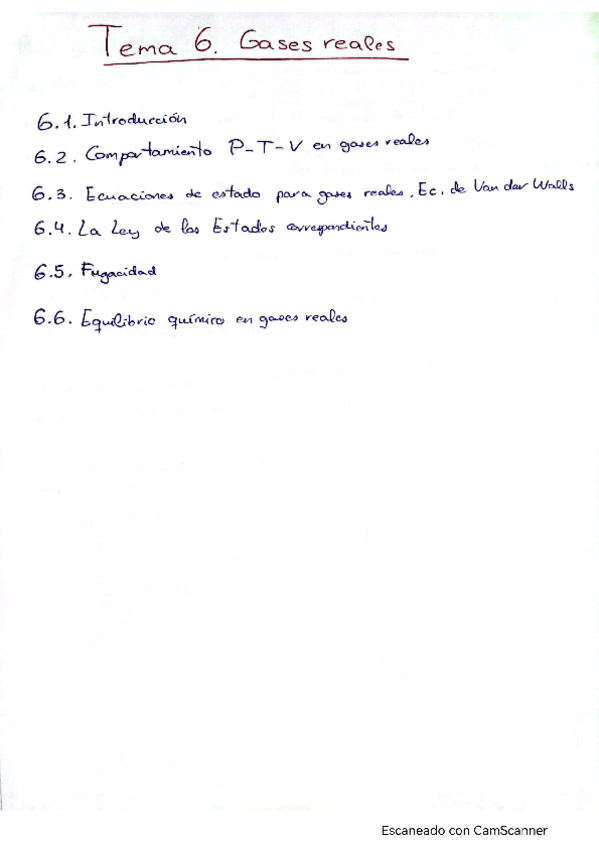 Tema 6. Gases reales
6.1. Introducción
6.2. Comportamiento P-T-V en gases reales
6.3. Ecuaciones de estado para gases reales. Ec. de Van der Walls
6.4. La Ley de los Estados correspondientes
6.5. Fugacidad
6.6. Equilibrio químico en gases reales
Escaneado con CamScanner